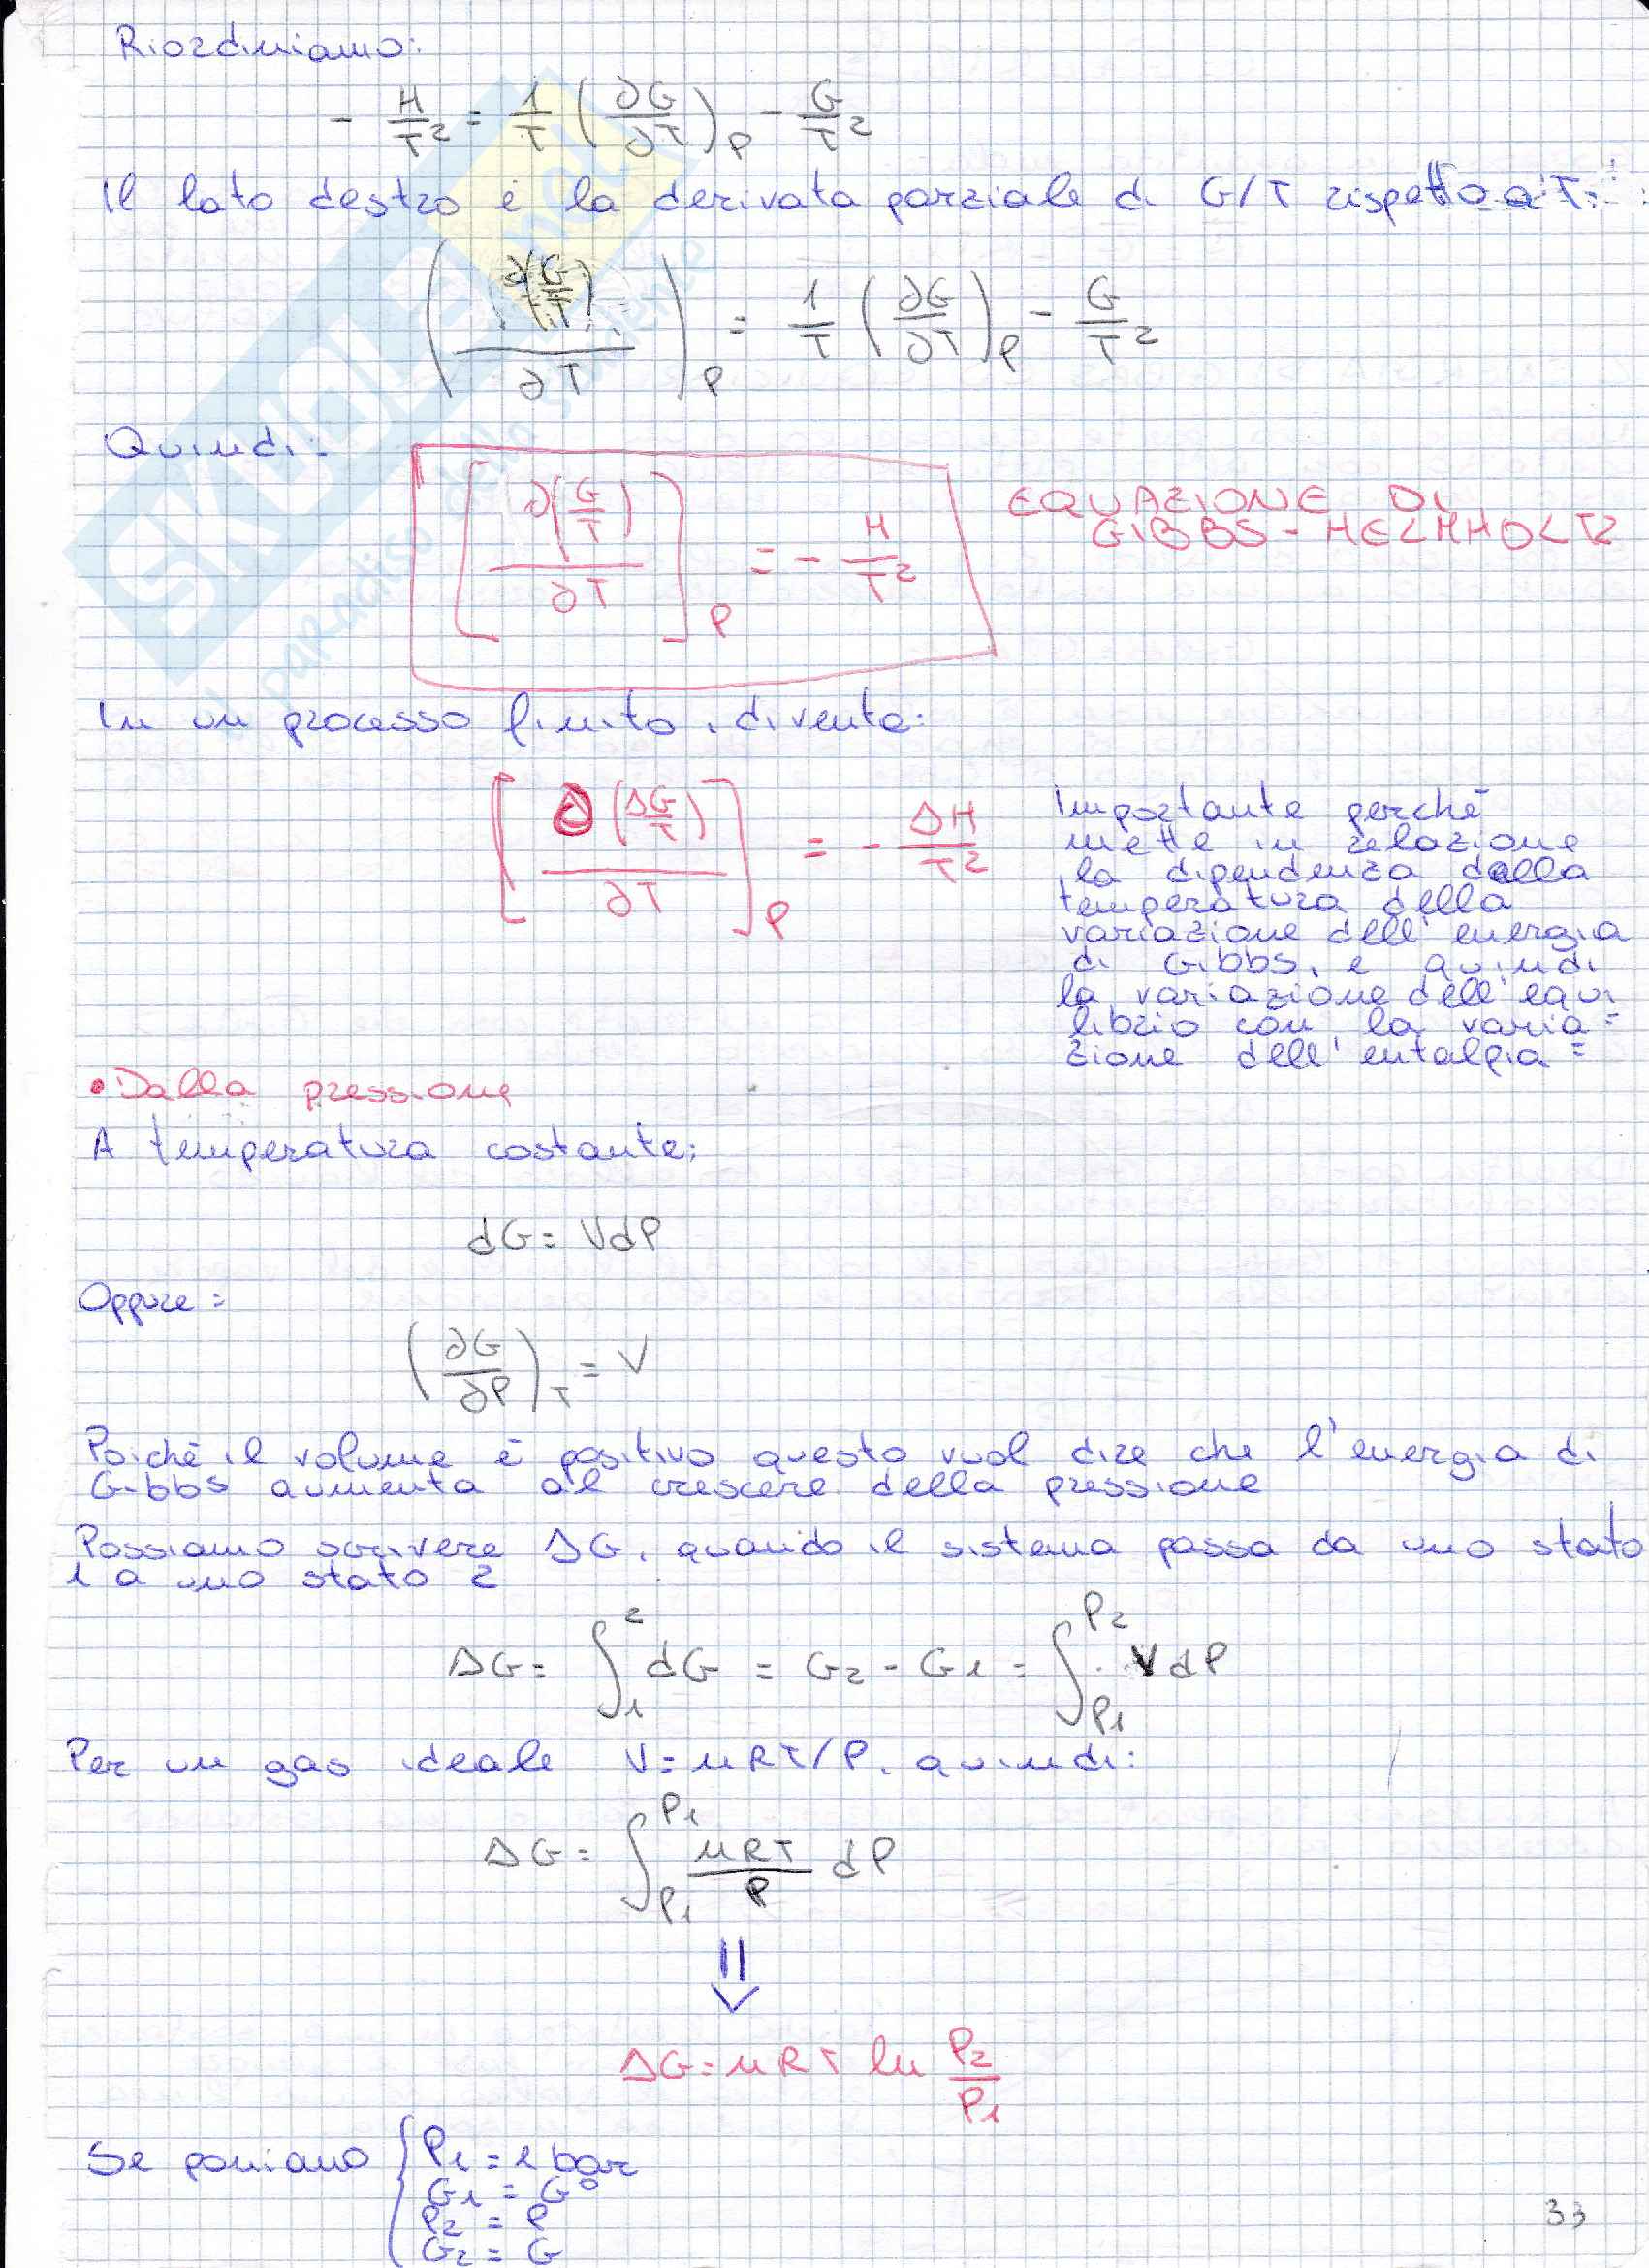 Riordiniamo:
- H/T² = 1/T (∂G/∂T)_P - G/T²
Il lato destro è la derivata parziale di G/T rispetto a T:
(∂(G/T)/∂T)_P = 1/T (∂G/∂T)_P - G/T²
Quindi:
[∂(G/T)/∂T]_P = - H/T²
EQUAZIONE DI
GIBBS-HELMHOLTZ
In un processo finito, diventa:
[∂(ΔG/T)/∂T]_P = - ΔH/T²
Importante perché
mette in relazione
la dipendenza dalla
temperatura della
variazione dell'energia
di Gibbs, e quindi
la variazione dell'equi
librio con la varia=
zione dell'entalpia=
•Dalla pressione
A temperatura costante:
dG= VdP
Oppure=
(∂G/∂P)_T = V
Poiché il volume è positivo questo vuol dire che l'energia di
Gibbs aumenta al crescere della pressione
Possiamo scrivere ΔG, quando il sistema passa da uno stato
1 a uno stato 2
ΔG= ∫₁² dG = G₂ - G₁ = ∫_P₁^P₂ VdP
Per un gas ideale V=nRT/P, quindi:
ΔG= ∫_P₁^P₁ nRT/P dP
⇓
ΔG=nRT ln P₂/P₁
Se poniamo { P₁ = 1 bar
G₁ = G°
P₂ = P
G₂ = G
33
SKUOLA.net
il paradiso dello studente